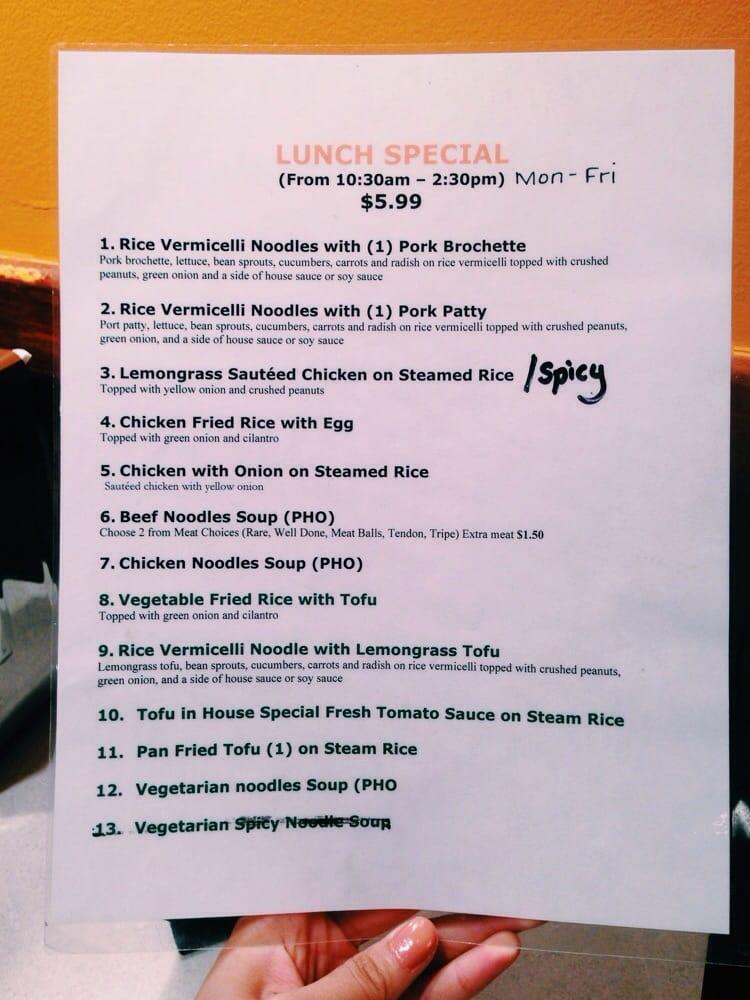 LUNCH SPECIAL
(From 10:30am – 2:30pm) Mon-Fri
$5.99
1. Rice Vermicelli Noodles with (1) Pork Brochette
Pork brochette, lettuce, bean sprouts, cucumbers, carrots and radish on rice vermicelli topped with crushed
peanuts, green onion and a side of house sauce or soy sauce
2. Rice Vermicelli Noodles with (1) Pork Patty
Port patty, lettuce, bean sprouts, cucumbers, carrots and radish on rice vermicelli topped with crushed peanuts,
green onion, and a side of house sauce or soy sauce
3. Lemongrass Sautéed Chicken on Steamed Rice /Spicy
Topped with yellow onion and crushed peanuts
4. Chicken Fried Rice with Egg
Topped with green onion and cilantro
5. Chicken with Onion on Steamed Rice
Sautéed chicken with yellow onion
6. Beef Noodles Soup (PHO)
Choose 2 from Meat Choices (Rare, Well Done, Meat Balls, Tendon, Tripe) Extra meat $1.50
7. Chicken Noodles Soup (PHO)
8. Vegetable Fried Rice with Tofu
Topped with green onion and cilantro
9. Rice Vermicelli Noodle with Lemongrass Tofu
Lemongrass tofu, bean sprouts, cucumbers, carrots and radish on rice vermicelli topped with crushed peanuts,
green onion, and a side of house sauce or soy sauce
10. Tofu in House Special Fresh Tomato Sauce on Steam Rice
11. Pan Fried Tofu (1) on Steam Rice
12. Vegetarian noodles Soup (PHO
13. Vegetarian Spicy Noodle Soup